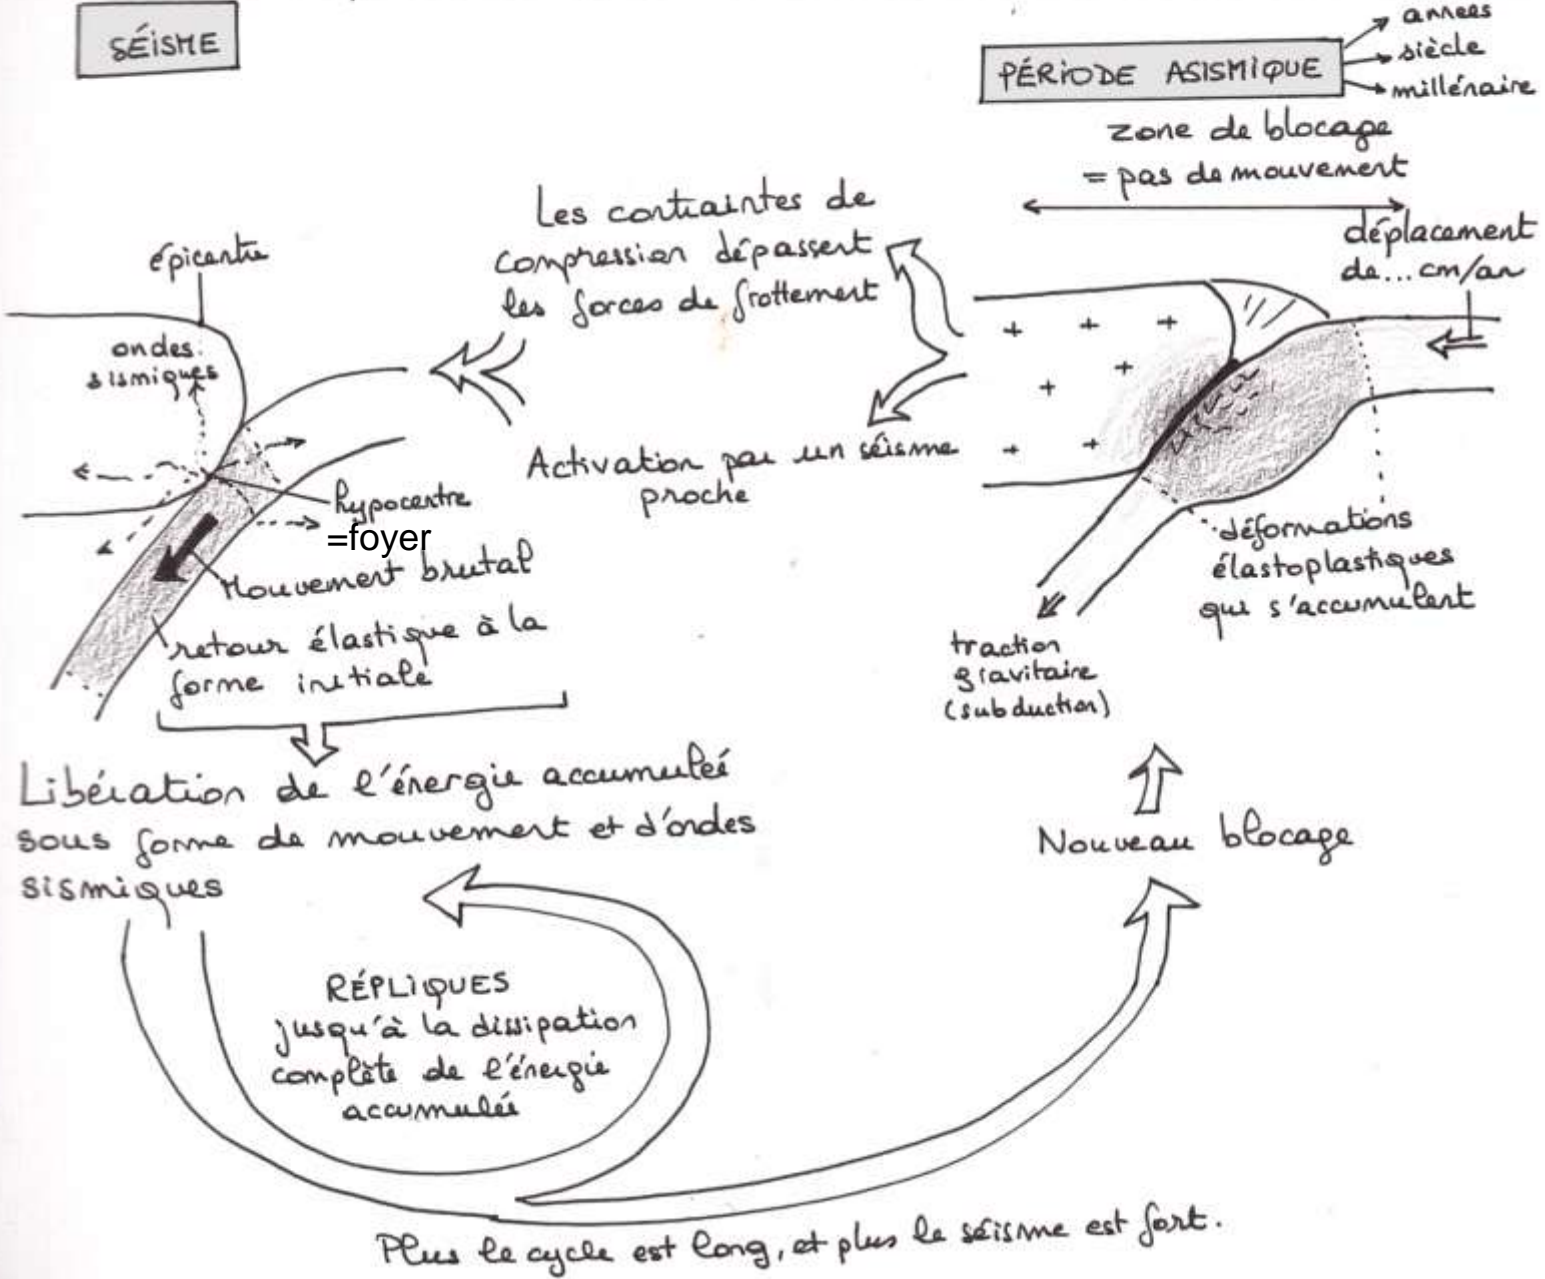 SÉISME
PÉRIODE ASISMIQUE
années
siècle
millénaire
zone de blocage
= pas de mouvement
déplacement
de... cm/an
Les contraintes de
compression dépassent
les forces de frottement
Activation par un séisme
proche
épicentre
ondes
sismiques
hypocentre
=foyer
Mouvement brutal
retour élastique à la
forme initiale
déformations
élastoplastiques
qui s'accumulent
traction
gravitaire
(subduction)
Libération de l'énergie accumulée
sous forme de mouvement et d'ondes
sismiques
Nouveau blocage
RÉPLIQUES
jusqu'à la dissipation
complète de l'énergie
accumulée
Plus le cycle est long, et plus le séisme est fort.